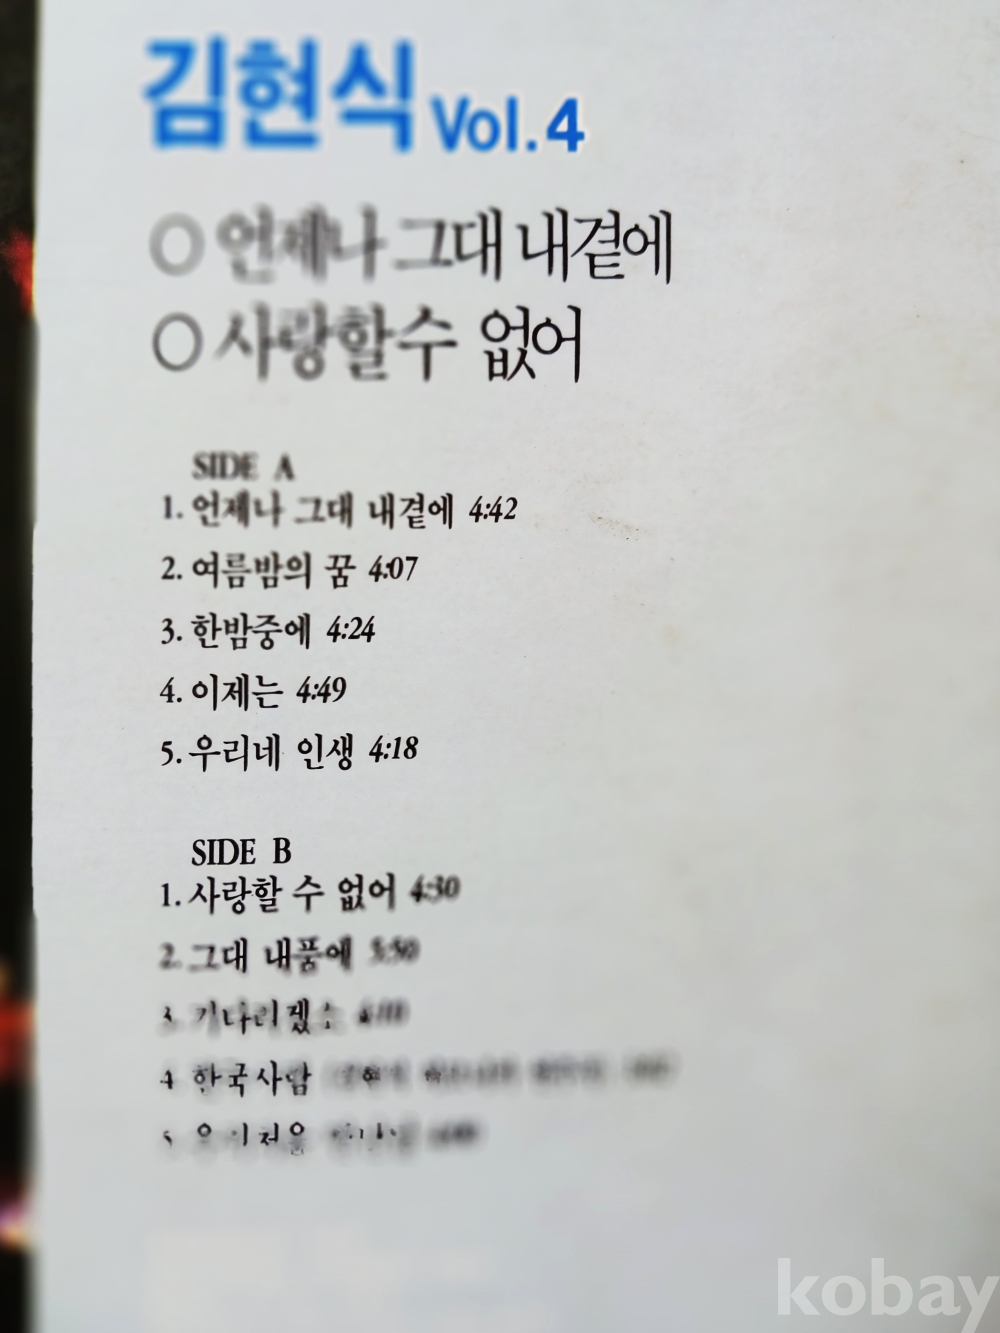 김현식 Vol.4
○ 언제나 그대 내곁에
○ 사랑할수 없어
SIDE A
1. 언제나 그대 내곁에 4:42
2. 여름밤의 꿈 4:07
3. 한밤중에 4:24
4. 이제는 4:49
5. 우리네 인생 4:18
SIDE B
1. 사랑할 수 없어 4:30
2. 그대 내품에
3. 기다리겠소
4. 한국사람
5. 우리처음
kobay